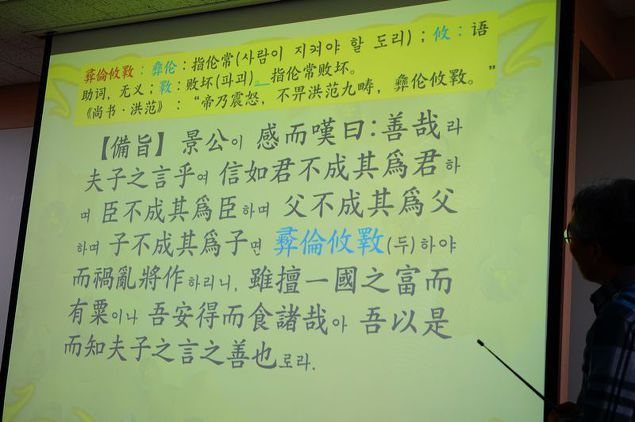 彛倫攸斁：彝伦：指伦常(사람이 지켜야 할 도리)；攸：语
助词，无义；斁：败坏(파괴)。指伦常败坏。
《尚书·洪范》：“帝乃震怒，不畏洪范九畴，彝伦攸斁。”
【備旨】 景公이 感而嘆曰：善哉라
夫子之言乎여 信如君不成其爲君하
며 臣不成其爲臣하며 父不成其爲父
하며 子不成其爲子면 彛倫攸斁(두)하야
而禍亂將作하리니, 雖擅一國之富而
有粟이나 吾安得而食諸哉아 吾以是
而知夫子之言之善也로라.